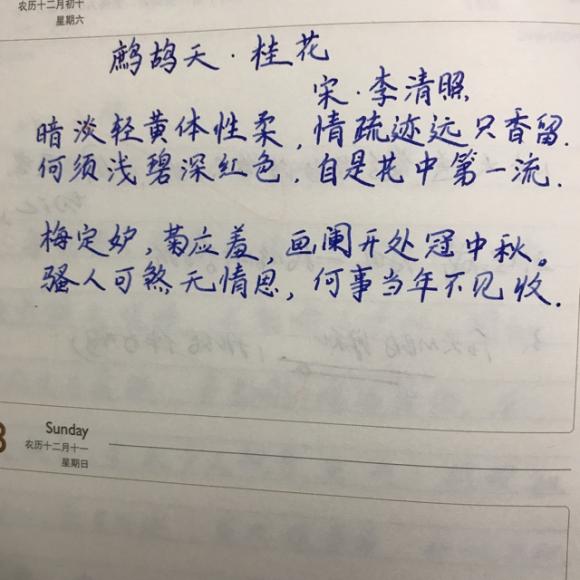 农历十二月初十
星期六
鹧鸪天·桂花
宋·李清照
暗淡轻黄体性柔,情疏迹远只香留.
何须浅碧深红色.自是花中第一流.
梅定妒,菊应羞,画阑开处冠中秋。
骚人可煞无情思,何事当年不见收.
Sunday
农历十二月十一
星期日